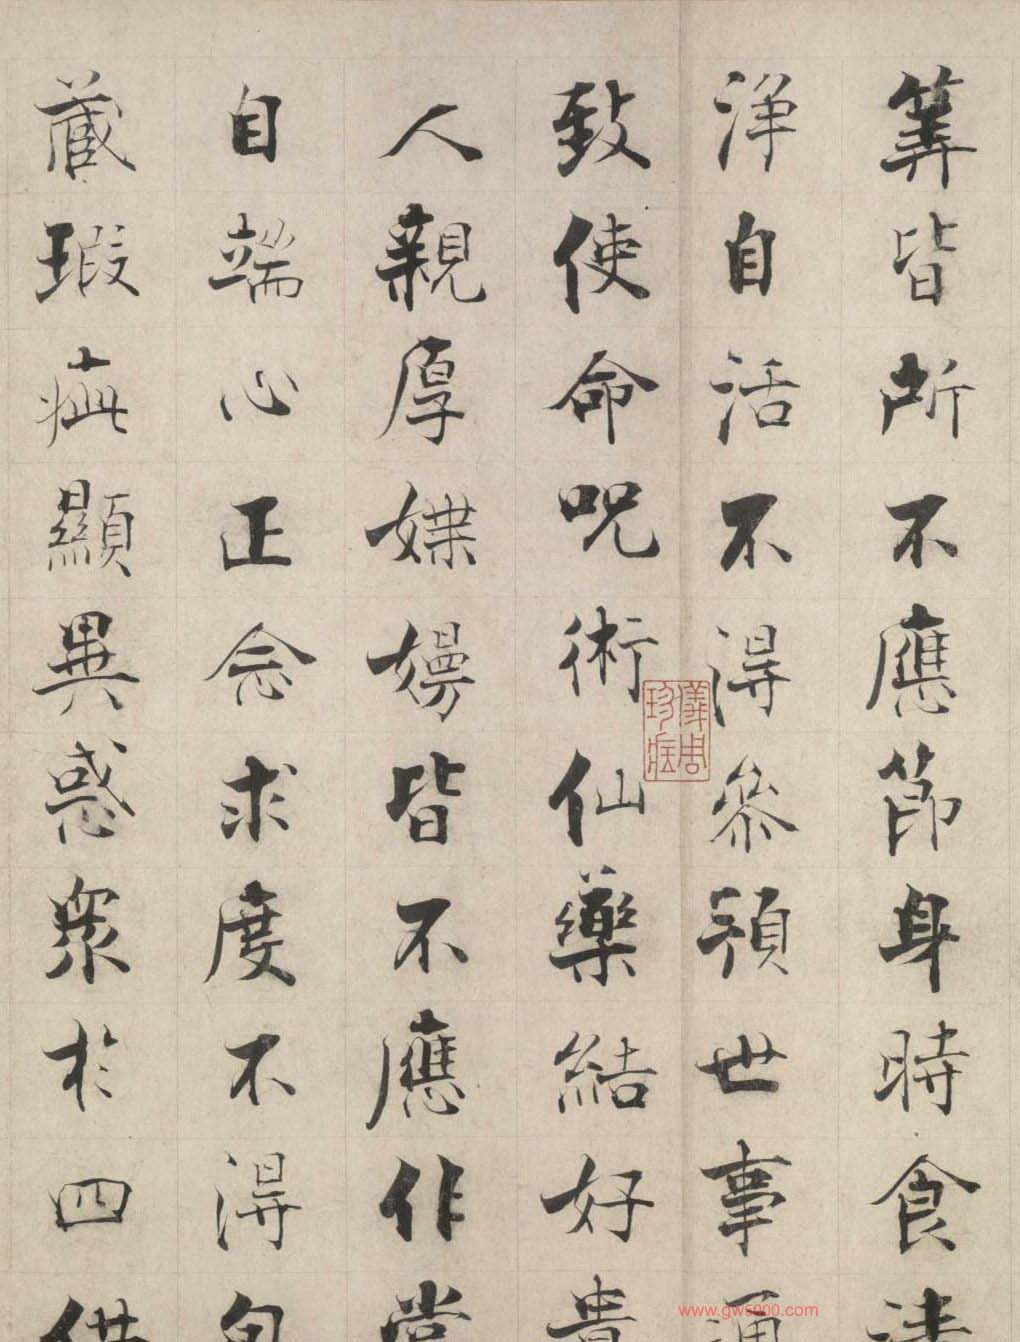 筭皆所不應節身時食清
淨自活不得參預世事通
致使命呪術仙藥結好貴
人親厚媟嫚皆不應作當
自端心正念求度不得包
藏瑕疵顯異惑衆於四供
儀周珍藏
www.gw5000.com